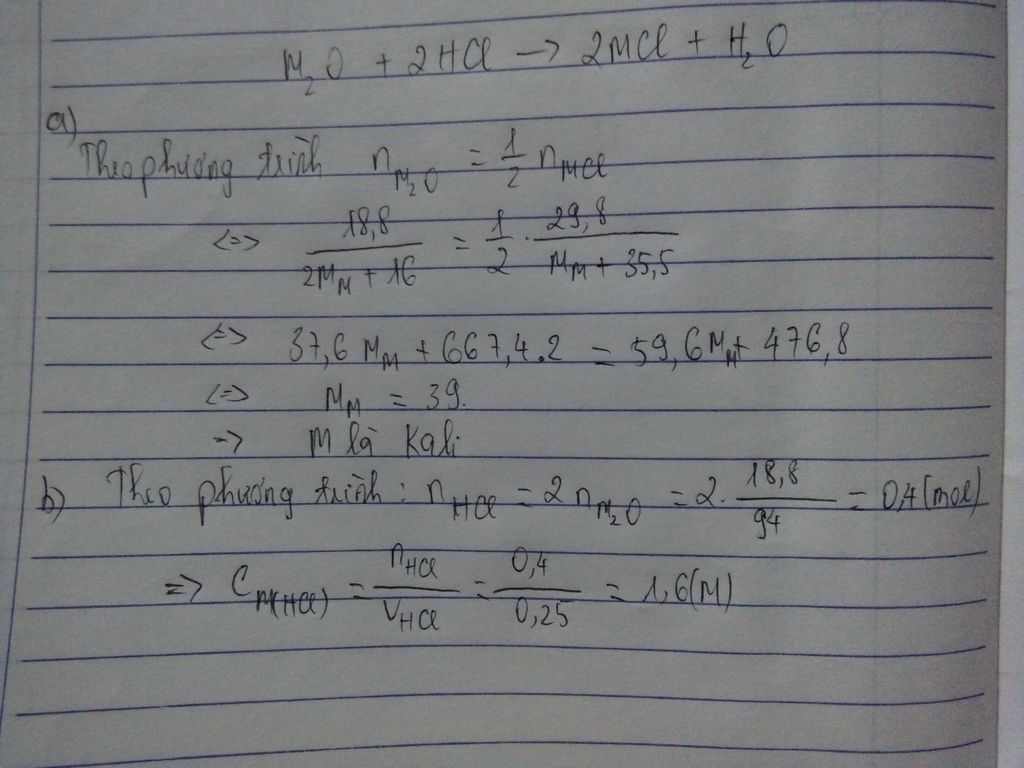 M₂O + 2HCl → 2MCl + H₂O
a)
Theo phương trình n_{M₂O} = \frac{1}{2} n_{MCl}
<=> \frac{18,8}{2M_M + 16} = \frac{1}{2} \cdot \frac{29,8}{M_M + 35,5}
<=> 37,6 M_M + 667,4.2 = 59,6 M_M + 476,8
<=> M_M = 39.
=> M là Kali
b) Theo phương trình : n_{HCl} = 2 n_{M₂O} = 2. \frac{18,8}{94} = 0,4 (mol)
=> C_{M(HCl)} = \frac{n_{HCl}}{V_{HCl}} = \frac{0,4}{0,25} = 1,6(M)